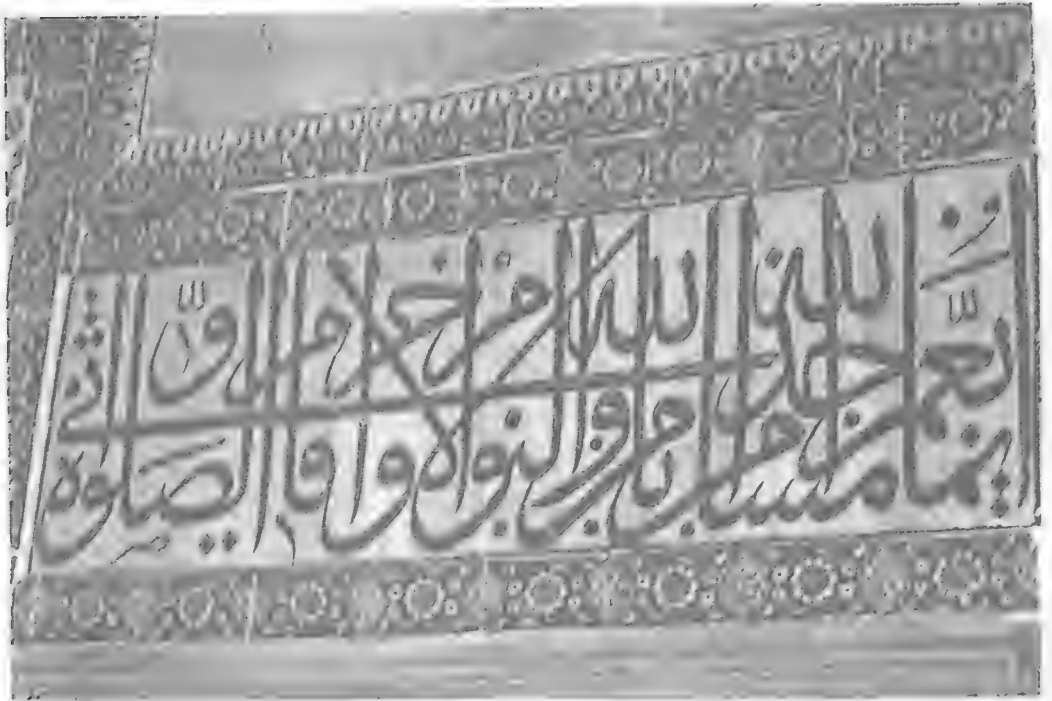 انما يعمر مساجد الله من امن بالله واليوم الاخر واقام الصلوة